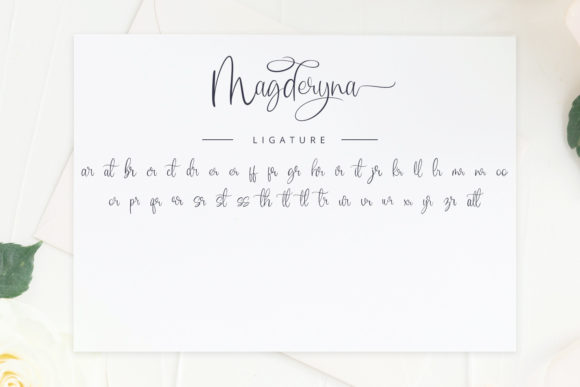 Magderyna
LIGATURE
ar at br er ct dr er er ff fr gr hr ir it jr kr ll lr mr nr oo
or pr qr rr sr st ss th tt tl tr ur vr wr xr yr zr att